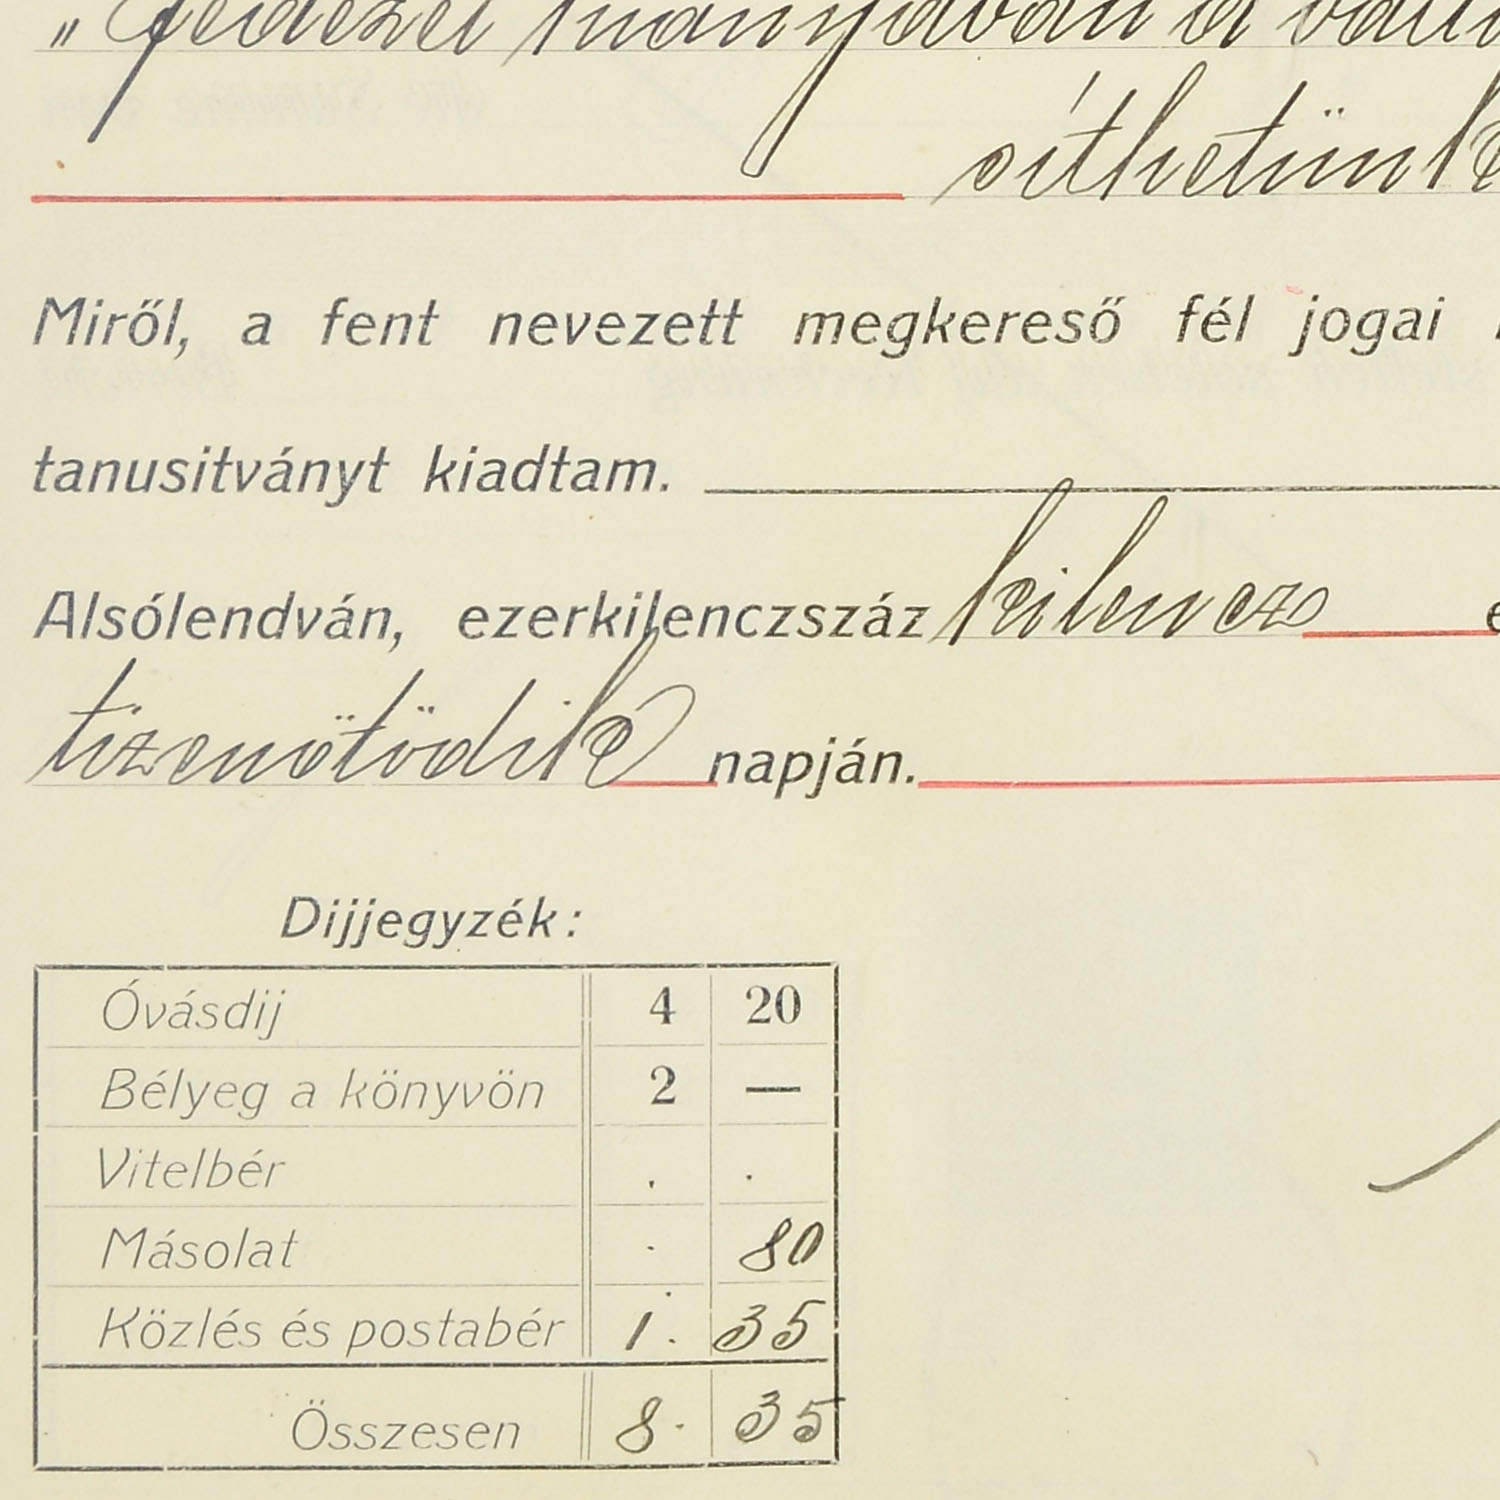 „Fedezet hiányában a
síthetünk
Miről, a fent nevezett megkereső fél jogai
tanusitványt kiadtam.
Alsólendván, ezerkilenczszáz kilencz
tizenötödik napján.
Dijjegyzék:
Óvásdij 4 20
Bélyeg a könyvön 2 —
Vitelbér . .
Másolat . 80
Közlés és postabér 1. 35
Összesen 8. 35